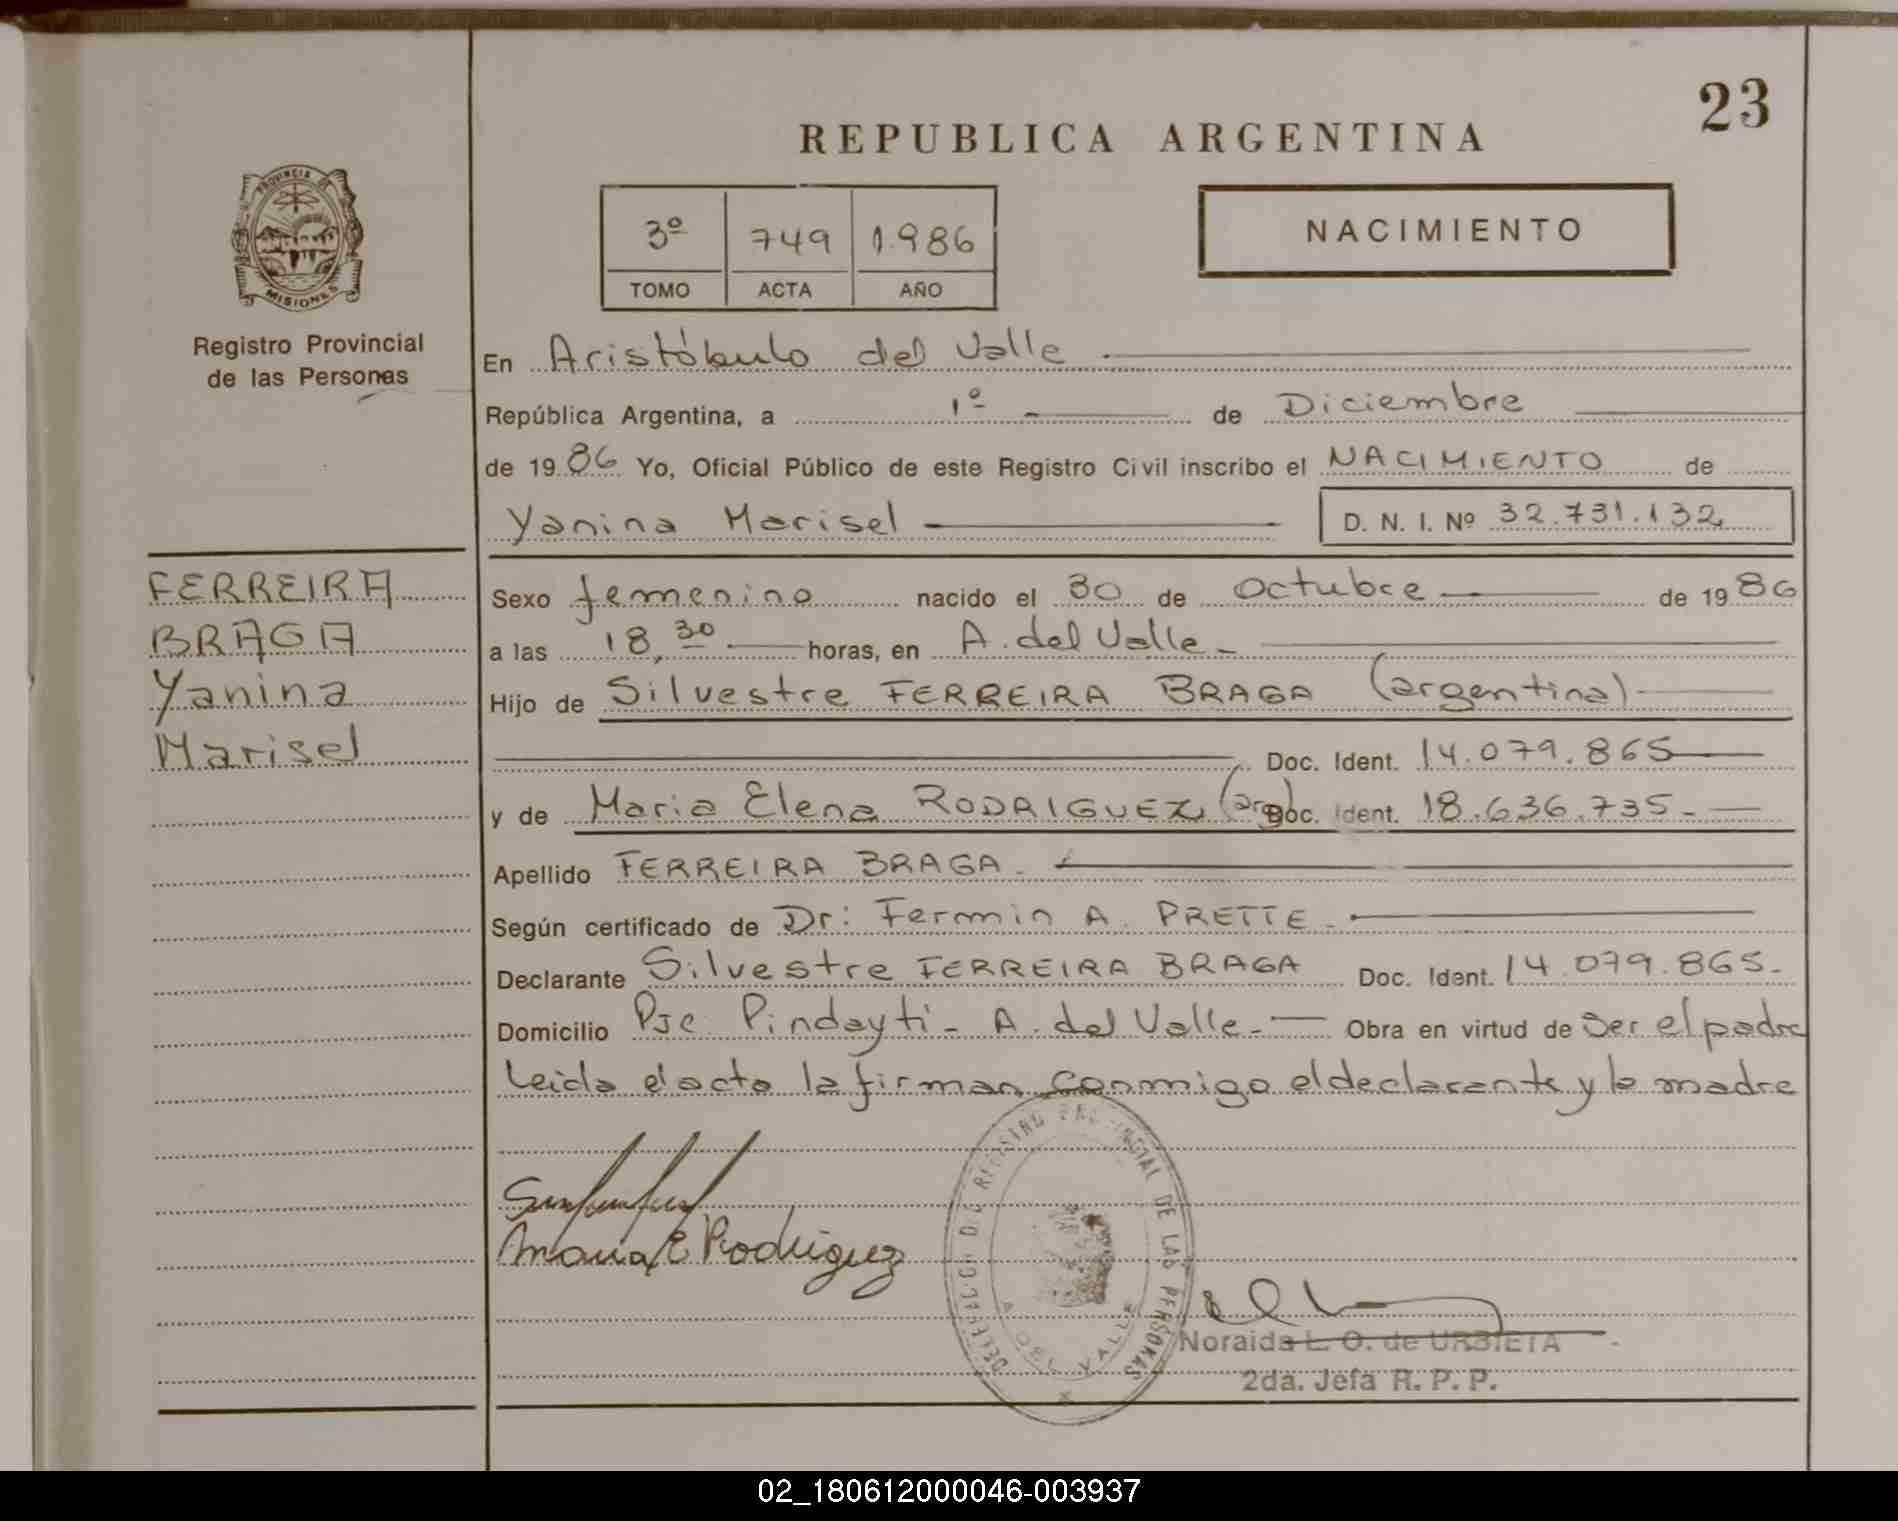 23
REPUBLICA ARGENTINA
PROVINCIA DE
MISIONES
Registro Provincial
de las Personas
3º 749 1.986
TOMO ACTA AÑO
NACIMIENTO
En Aristóbulo del Valle
República Argentina, a 1º de Diciembre
de 1986 Yo, Oficial Público de este Registro Civil inscribo el NACIMIENTO de
Yanina Marisel D. N. I. Nº 32.731.132
FERREIRA
BRAGA
Yanina
Marisel
Sexo femenino nacido el 30 de Octubre de 1986
a las 18,30 horas, en A. del Valle-
Hijo de Silvestre FERREIRA BRAGA (argentina)
Doc. Ident. 14.079.865
y de Maria Elena RODRIGUEZ (arg) Doc. Ident. 18.636.735-
Apellido FERREIRA BRAGA.
Según certificado de Dr: Fermin A. PRETTE.
Declarante Silvestre FERREIRA BRAGA Doc. Ident. 14.079.865-
Domicilio Pje. Pindayti- A. del Valle- Obra en virtud de Ser el padre
Leida el acta la firman conmigo el declarante y la madre
Maria E Rodriguez
DELEGACION DEL REGISTRO PROVINCIAL DE LAS PERSONAS
VALLE
Noraida L. O. de URBIETA
2da. Jefa R. P. P.
02_180612000046-003937